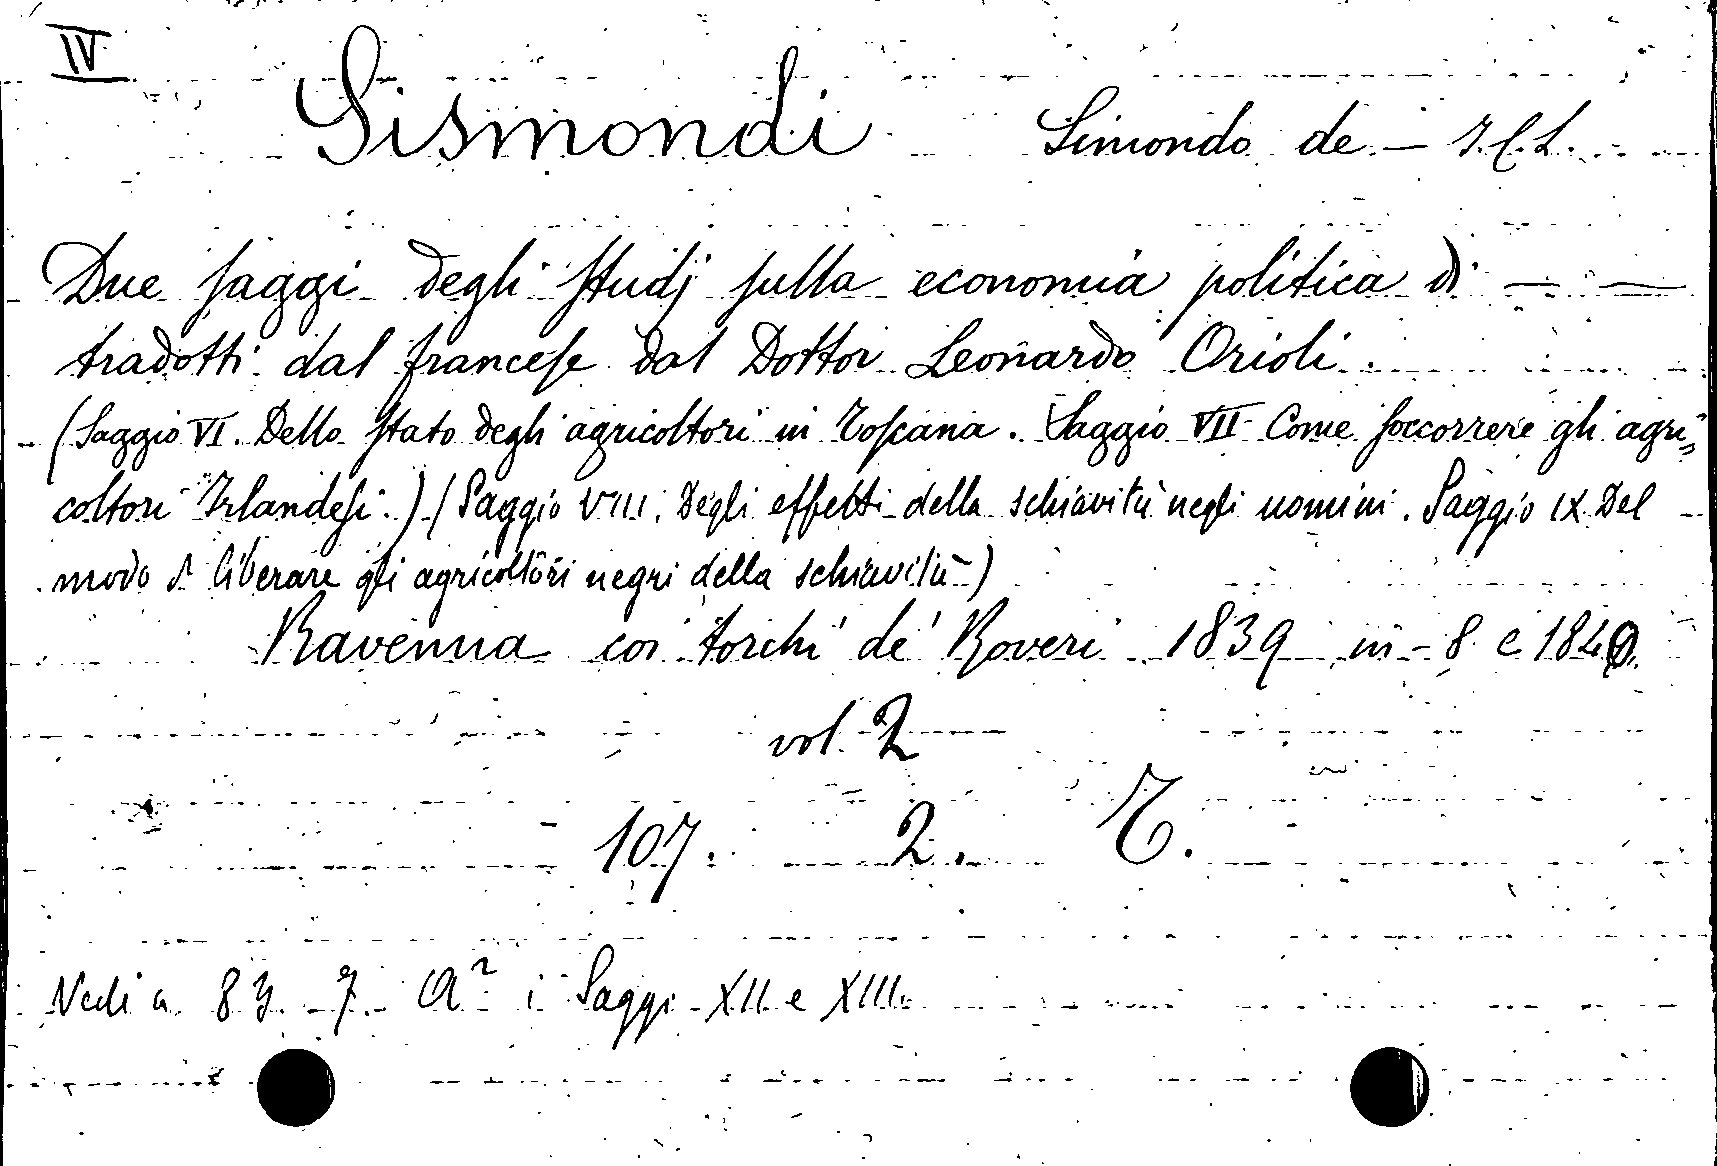 IV
Sismondi Simondo de - J. C. L.
Due saggi degli studj sulla economia politica di — —
tradotti dal francese dal Dottor Leonardo Orioli.
(Saggio VI. Dello stato degli agricoltori in Toscana. Saggio VII Come soccorrere gli agri=
coltori Irlandesi.) (Saggio VIII. Degli effetti della schiavitù negli uomini. Saggio IX Del
modo di liberare gli agricoltori negri della schiavitù)
Ravenna coi torchi de' Roveri 1839 in-8 e 1840.
vol. 2
107. 2. T.
Vedi a 83. 7. A² i Saggi XII e XIII.